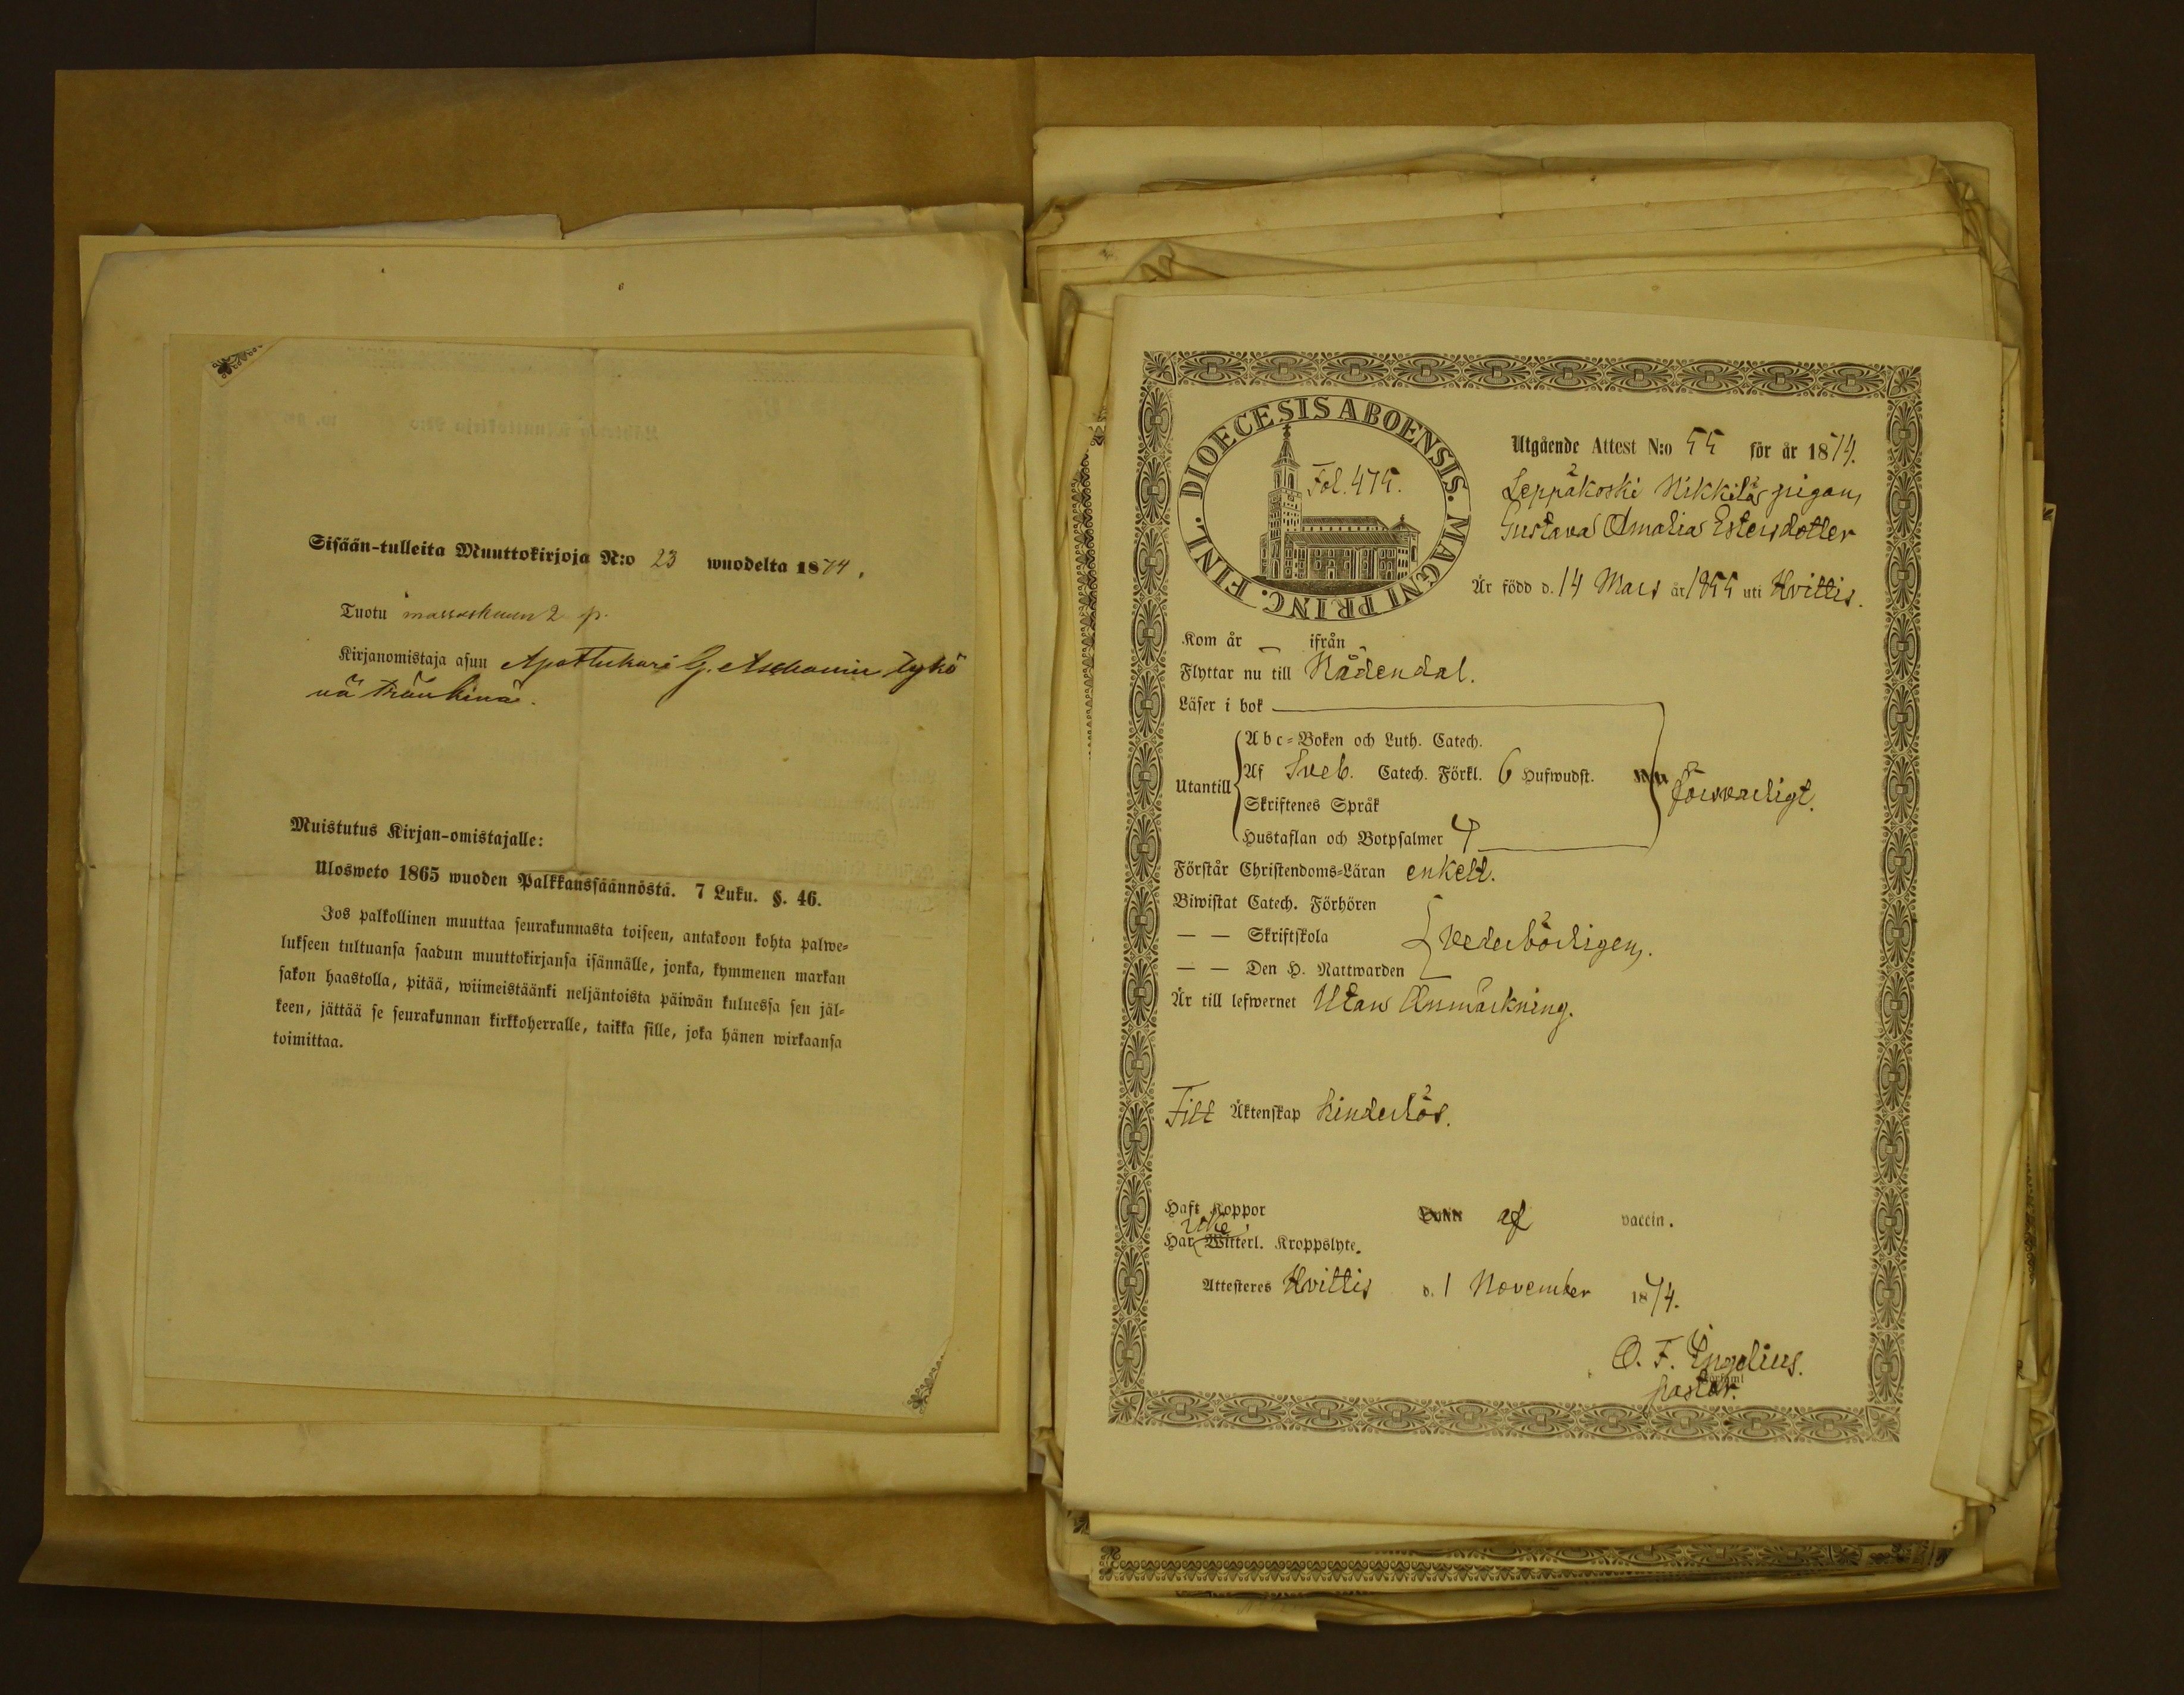 Sisään-tulleita Muuttokirjoja N:o 23 wuodelta 1874.
Tuotu marraskuun 2 p.
Kirjanomistaja asuu Apottekari G. tykö
nä
Muistutus Kirjan-omistajalle:
Ulosweto 1865 wuoden Palkkaussäännöstä. 7 Luku. §. 46.
Jos palkollinen muuttaa seurakunnasta toiseen, antakoon kohta palwe-
lukseen tultuansa saadun muuttokirjansa isännälle, jonka, kymmenen markan
sakon haastolla, pitää, wiimeistäänki neljäntoista päiwän kuluessa sen jäl-
keen, jättää se seurakunnan kirkkoherralle, taikka sille, joka hänen wirkaansa
toimittaa.
DIOECESIS ABOENSIS. MAGNI PRINC. FINL.
Fol. 475.
Utgående Attest N:o 55 för år 1874.
Leppäkoski Nikkilä pigan,
Gustava Amalia Estersdotter
Är född d. 14 Mars år 1855 uti Hvittis.
Kom år — ifrån —
Flyttar nu till Nådendal.
Läser i bok
Abc-Boken och Luth. Catech.
Utantill Af Sveb. Catech. Förkl. 6 Hufwudst. försvarligt.
Skriftenes Språk
Hustaflan och Botpsalmer 4
Förstår Christendoms-Läran enkelt.
Biwistat Catech. Förhören
— — Skriftskola vederbörligen.
— — Den H. Nattwarden
Är till lefwernet Utan Anmärkning.
Till Äktenskap hinderlös.
Haft Koppor af vaccin.
icke
Har Witterl. Kroppslyte.
Attesteres Hvittis d. 1 November 1874.
O. F. Ingelius.
pastor.